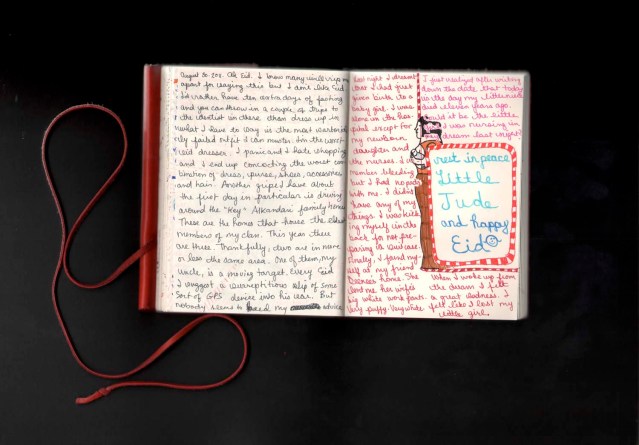 August 30, 2011. Ok Eid. I know many will rip me
apart for saying this but I don't like Eid.
I'd rather have ten extra days of fasting
and you can throw in a couple of trips to
the dentist in there than dress up in
what I have to say is the most
failed outfit I can muster. I'm the worst
Eid dresser. I panic and I hate shopping
and I end up concocting the worst com
bination of dress, purse, shoes, accessories
and hair. Another gripe I have about
the first day in particular is driving
around the "Key" Alkandari family homes.
These are the homes that house the elder
members of my clan. This year there
are three. Thankfully, two are in more
or less the same area. One of them, my
uncle, is a moving target. Every Eid
I suggest a surreptitious slip of some
sort of GPS device into his ear. But
nobody seems to heed my advice
last night I dreamt
that I had just
given birth to a
baby girl. I was
alone in the hos
pital except for
my newborn
daughter and
the nurses. I re
member bleeding
but I had no pads
with me. I didn't
have any of my
things. I was kick
ing myself in the
back for not pre
paring in advance.
Finally, I found my
self at my friend
home. She
lent me her wife's
big white work pants.
Very puffy. Very white
I just realized after writing
down the date, that today
is the day my little
died eleven years ago.
Could it be the little
I was nursing in
dream last night?
rest in peace
Little
Jude
and happy
Eid
When I woke up from
the dream I felt
a great sadness. I
felt like I lost my
little girl.